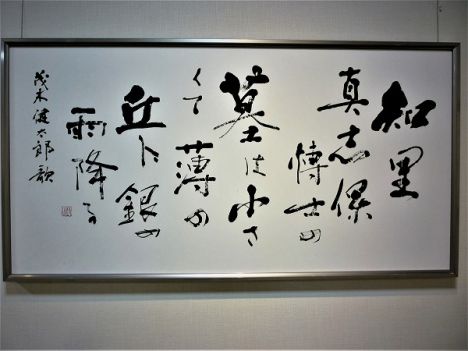 知里
真志保
博士の
墓は小さ
くて薄の
丘に銀の
雨降る
茂木健太郎歌